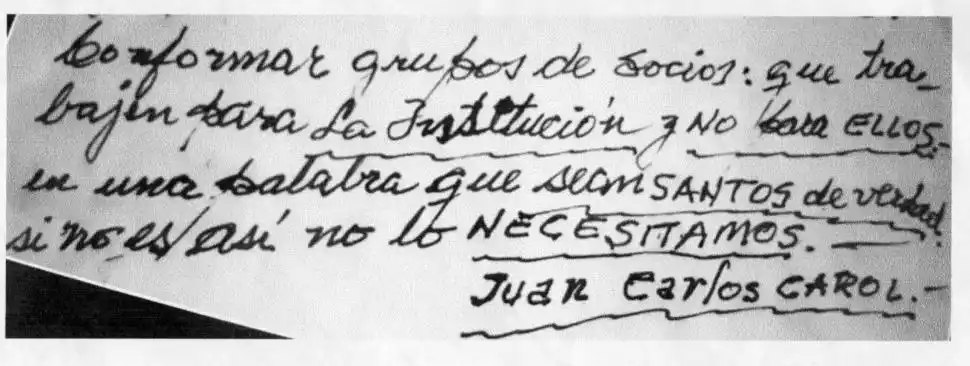 Conformar grupos de socios: que tra-
bajen para La Institución y NO para ELLOS.-
en una palabra que sean SANTOS de verdad.
si no es así no lo NECESITAMOS. —
Juan Carlos CAROL.-